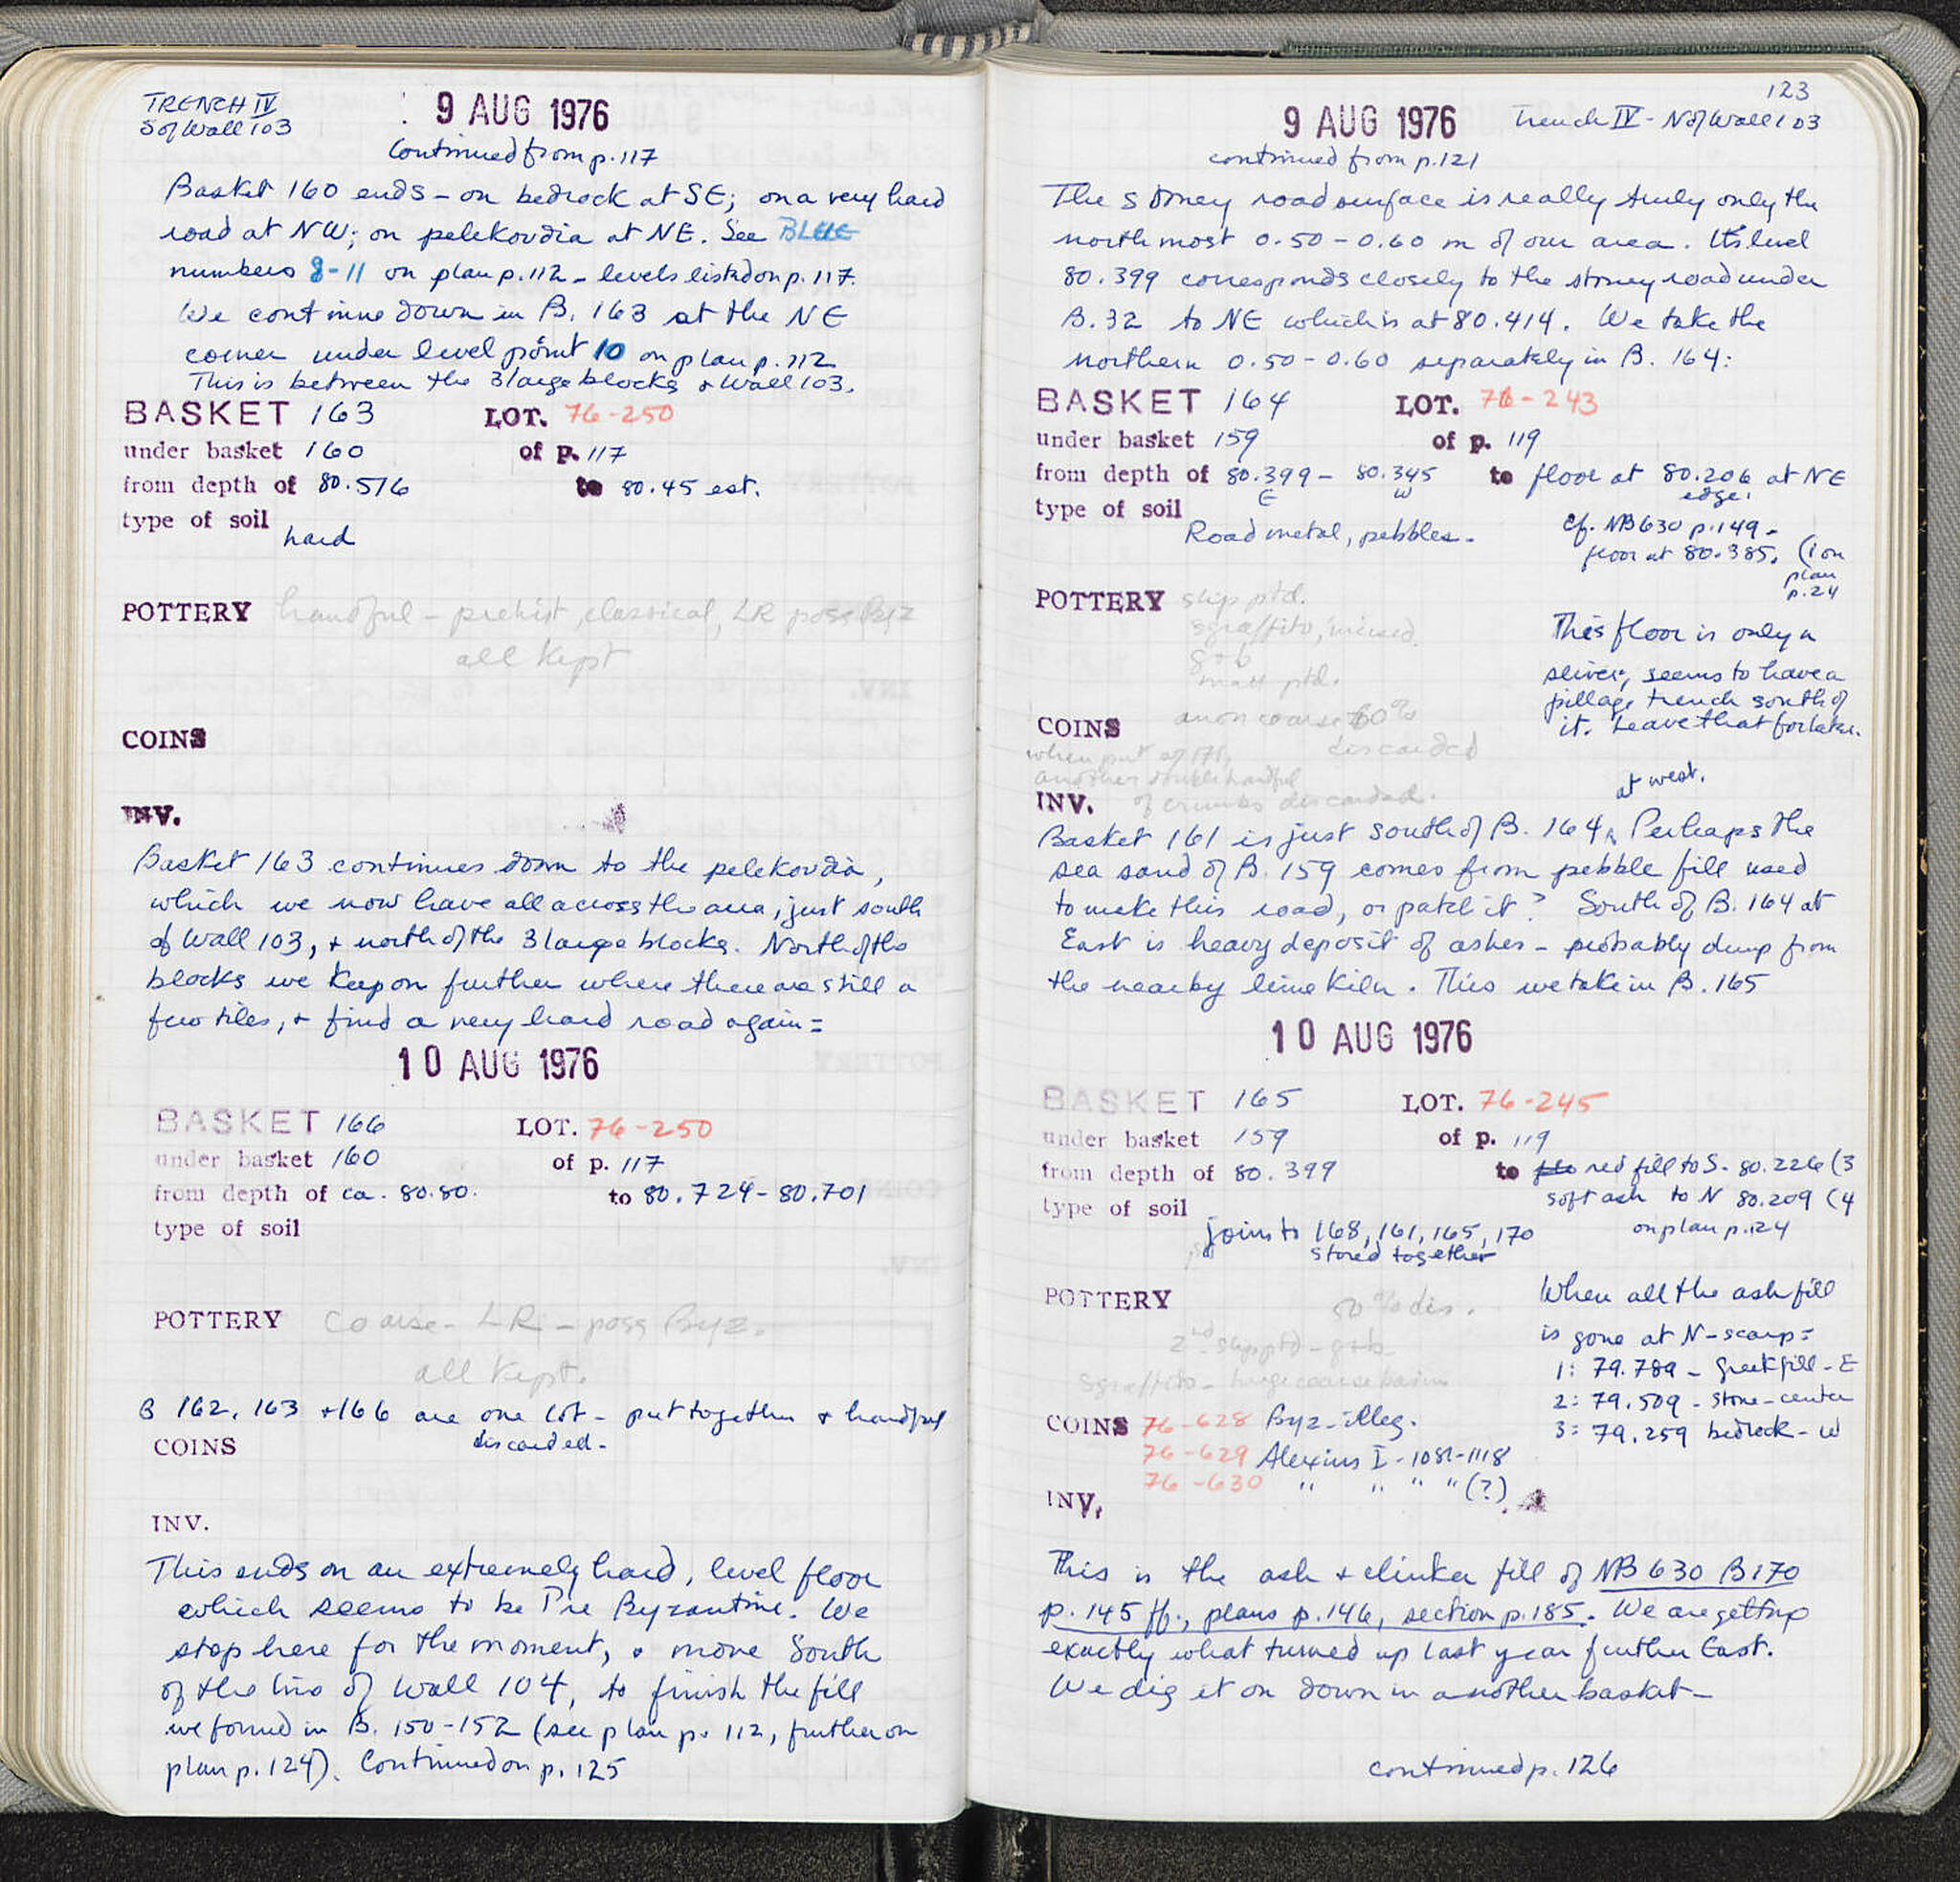 TRENCH IV
S of Wall 103
9 AUG 1976
Continued from p. 117
Basket 160 ends – on bedrock at SE; on a very hard
road at NW; on pelekoudia at NE. See BLUE
numbers 8-11 on plan p. 112 – levels listed on p. 117.
We continue down in B. 163 at the NE
corner under level point 10 on plan p. 112
This is between the 3 large blocks & Wall 103.
BASKET 163 LOT. 76-250
under basket 160 of p. 117
from depth of 80.576 to 80.45 est.
type of soil hard
POTTERY handful – prehist, classical, LR poss Byz
all kept
COINS
INV.
Basket 163 continues down to the pelekoudia,
which we now have all across the area, just south
of Wall 103, + north of the 3 large blocks. North of the
blocks we keep on further where there are still a
few tiles, + find a very hard road again =
10 AUG 1976
BASKET 166 LOT. 76-250
under basket 160 of p. 117
from depth of ca. 80.80. to 80.724 – 80.701
type of soil
POTTERY Coarse – LR – poss Byz.
all kept.
B 162, 163 +166 are one lot – put together + handful
discarded –
COINS
INV.
This ends on an extremely hard, level floor
which seems to be Pre Byzantine. We
stop here for the moment, & move South
of the line of Wall 104, to finish the fill
we found in B. 150-152 (see plan p. 112, further on
plan p. 124). Continued on p. 125
123
9 AUG 1976 Trench IV – N of Wall 103
continued from p. 121
The stoney road surface is really truly only the
northmost 0.50 – 0.60 m of our area. Its level
80.399 corresponds closely to the stoney road under
B. 32 to NE which is at 80.414. We take the
northern 0.50 – 0.60 separately in B. 164:
BASKET 164 LOT. 76-243
under basket 159 of p. 119
from depth of 80.399 – 80.345 to floor at 80.206 at NE
E W edge.
type of soil Road metal, pebbles.
cf. NB 630 p. 149 –
floor at 80.385. (1 on
plan
p. 24
This floor is only a
sliver, seems to have a
pillage trench south of
it. Leave that for later.
POTTERY slip ptd.
sgraffito, incised
g+b
matt ptd.
anon coarse 60%
discarded
COINS
when put w/ 171,
another double handful
of crumbs discarded.
INV.
at west.
Basket 161 is just south of B. 164. Perhaps the
sea sand of B. 159 comes from pebble fill used
to make this road, or patch it? South of B. 164 at
East is heavy deposit of ashes – probably dump from
the nearby lime kiln. This we take in B. 165
10 AUG 1976
BASKET 165 LOT. 76-245
under basket 159 of p. 119
from depth of 80.399 to red fill to S. 80.226 (3
soft ash to N 80.209 (4
on plan p. 124
type of soil
joins to 168, 161, 165, 170
stored together
POTTERY 50% dis.
2nd slip ptd – g+b
sgraffito – large coarse basin
When all the ash fill
is gone at N-scarp =
1: 79.789 – Greek fill – E
2: 79.509 – stone – center
3: 79.259 bedrock – W
COINS 76-628 Byz – illeg.
76-629 Alexius I – 1081-1118
76-630 " " " " (?)
INV.
This is the ash + clinker fill of NB 630 B170
p. 145 ff., plans p. 146, section p. 185. We are getting
exactly what turned up last year further East.
We dig it on down in another basket –
continued p. 126